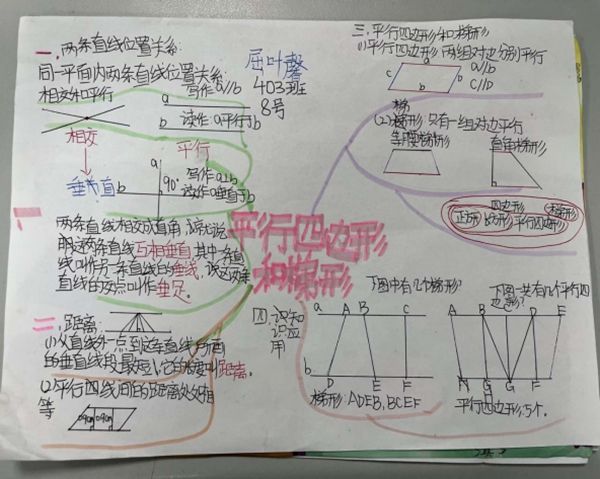 一、两条直线位置关系:
同一平面内两条直线位置关系:
相交和平行
写作 a//b
a
b
读作:a平行b
相交
平行
垂直
a
b
90°
写作 a⊥b
读作 a垂直于b
两条直线相交成直角,就说
明这两条直线互相垂直,其中一条直
线叫作另一条直线的垂线,
直线的交点叫作垂足。
屈叶馨
403班
8号
平行四边形
和梯形
二、距离:
(1)从直线外一点到这条直线所画
的垂直线段最短,它的长度叫距离。
(2)平行四线间的距离处处相
等
三、平行四边形和梯形
(1)平行四边形 两组对边分别平行
a
c
b
D
a//b
C//D
梯
(2)梯形 只有一组对边平行
等腰梯形
直角梯形
四边形
梯形
正方形
长方形
平行四边形
四、知识应用
下图中有几个梯形?
a
A B C
b
D E F
梯形:ADEB,BCEF
下图一共有几个平行四
边形?
A B D E
G F
平行四边形:5个.